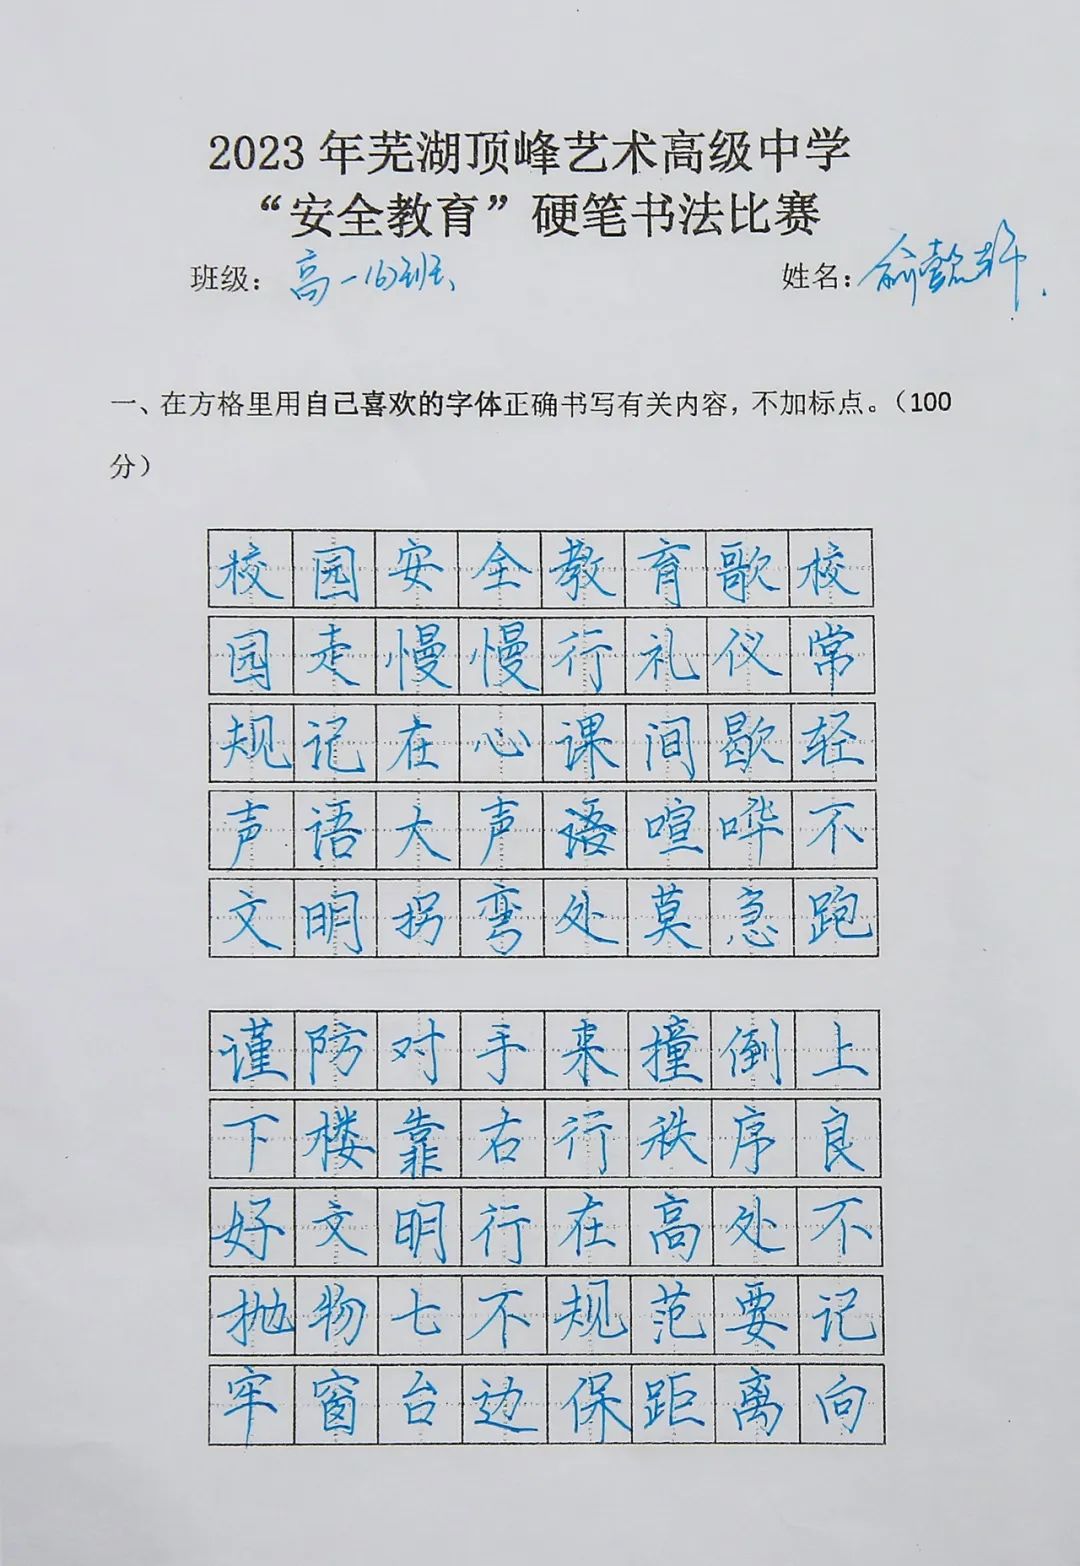 2023 年芜湖顶峰艺术高级中学
“安全教育”硬笔书法比赛
班级：高一(6)班 姓名：俞懿轩
一、在方格里用自己喜欢的字体正确书写有关内容，不加标点。（100
分）
校园安全教育歌校
园走慢慢行礼仪常
规记在心课间歇轻
声语大声语喧哗不
文明拐弯处莫急跑
谨防对手来撞倒上
下楼靠右行秩序良
好文明行在高处不
抛物七不规范要记
牢窗台边保距离向